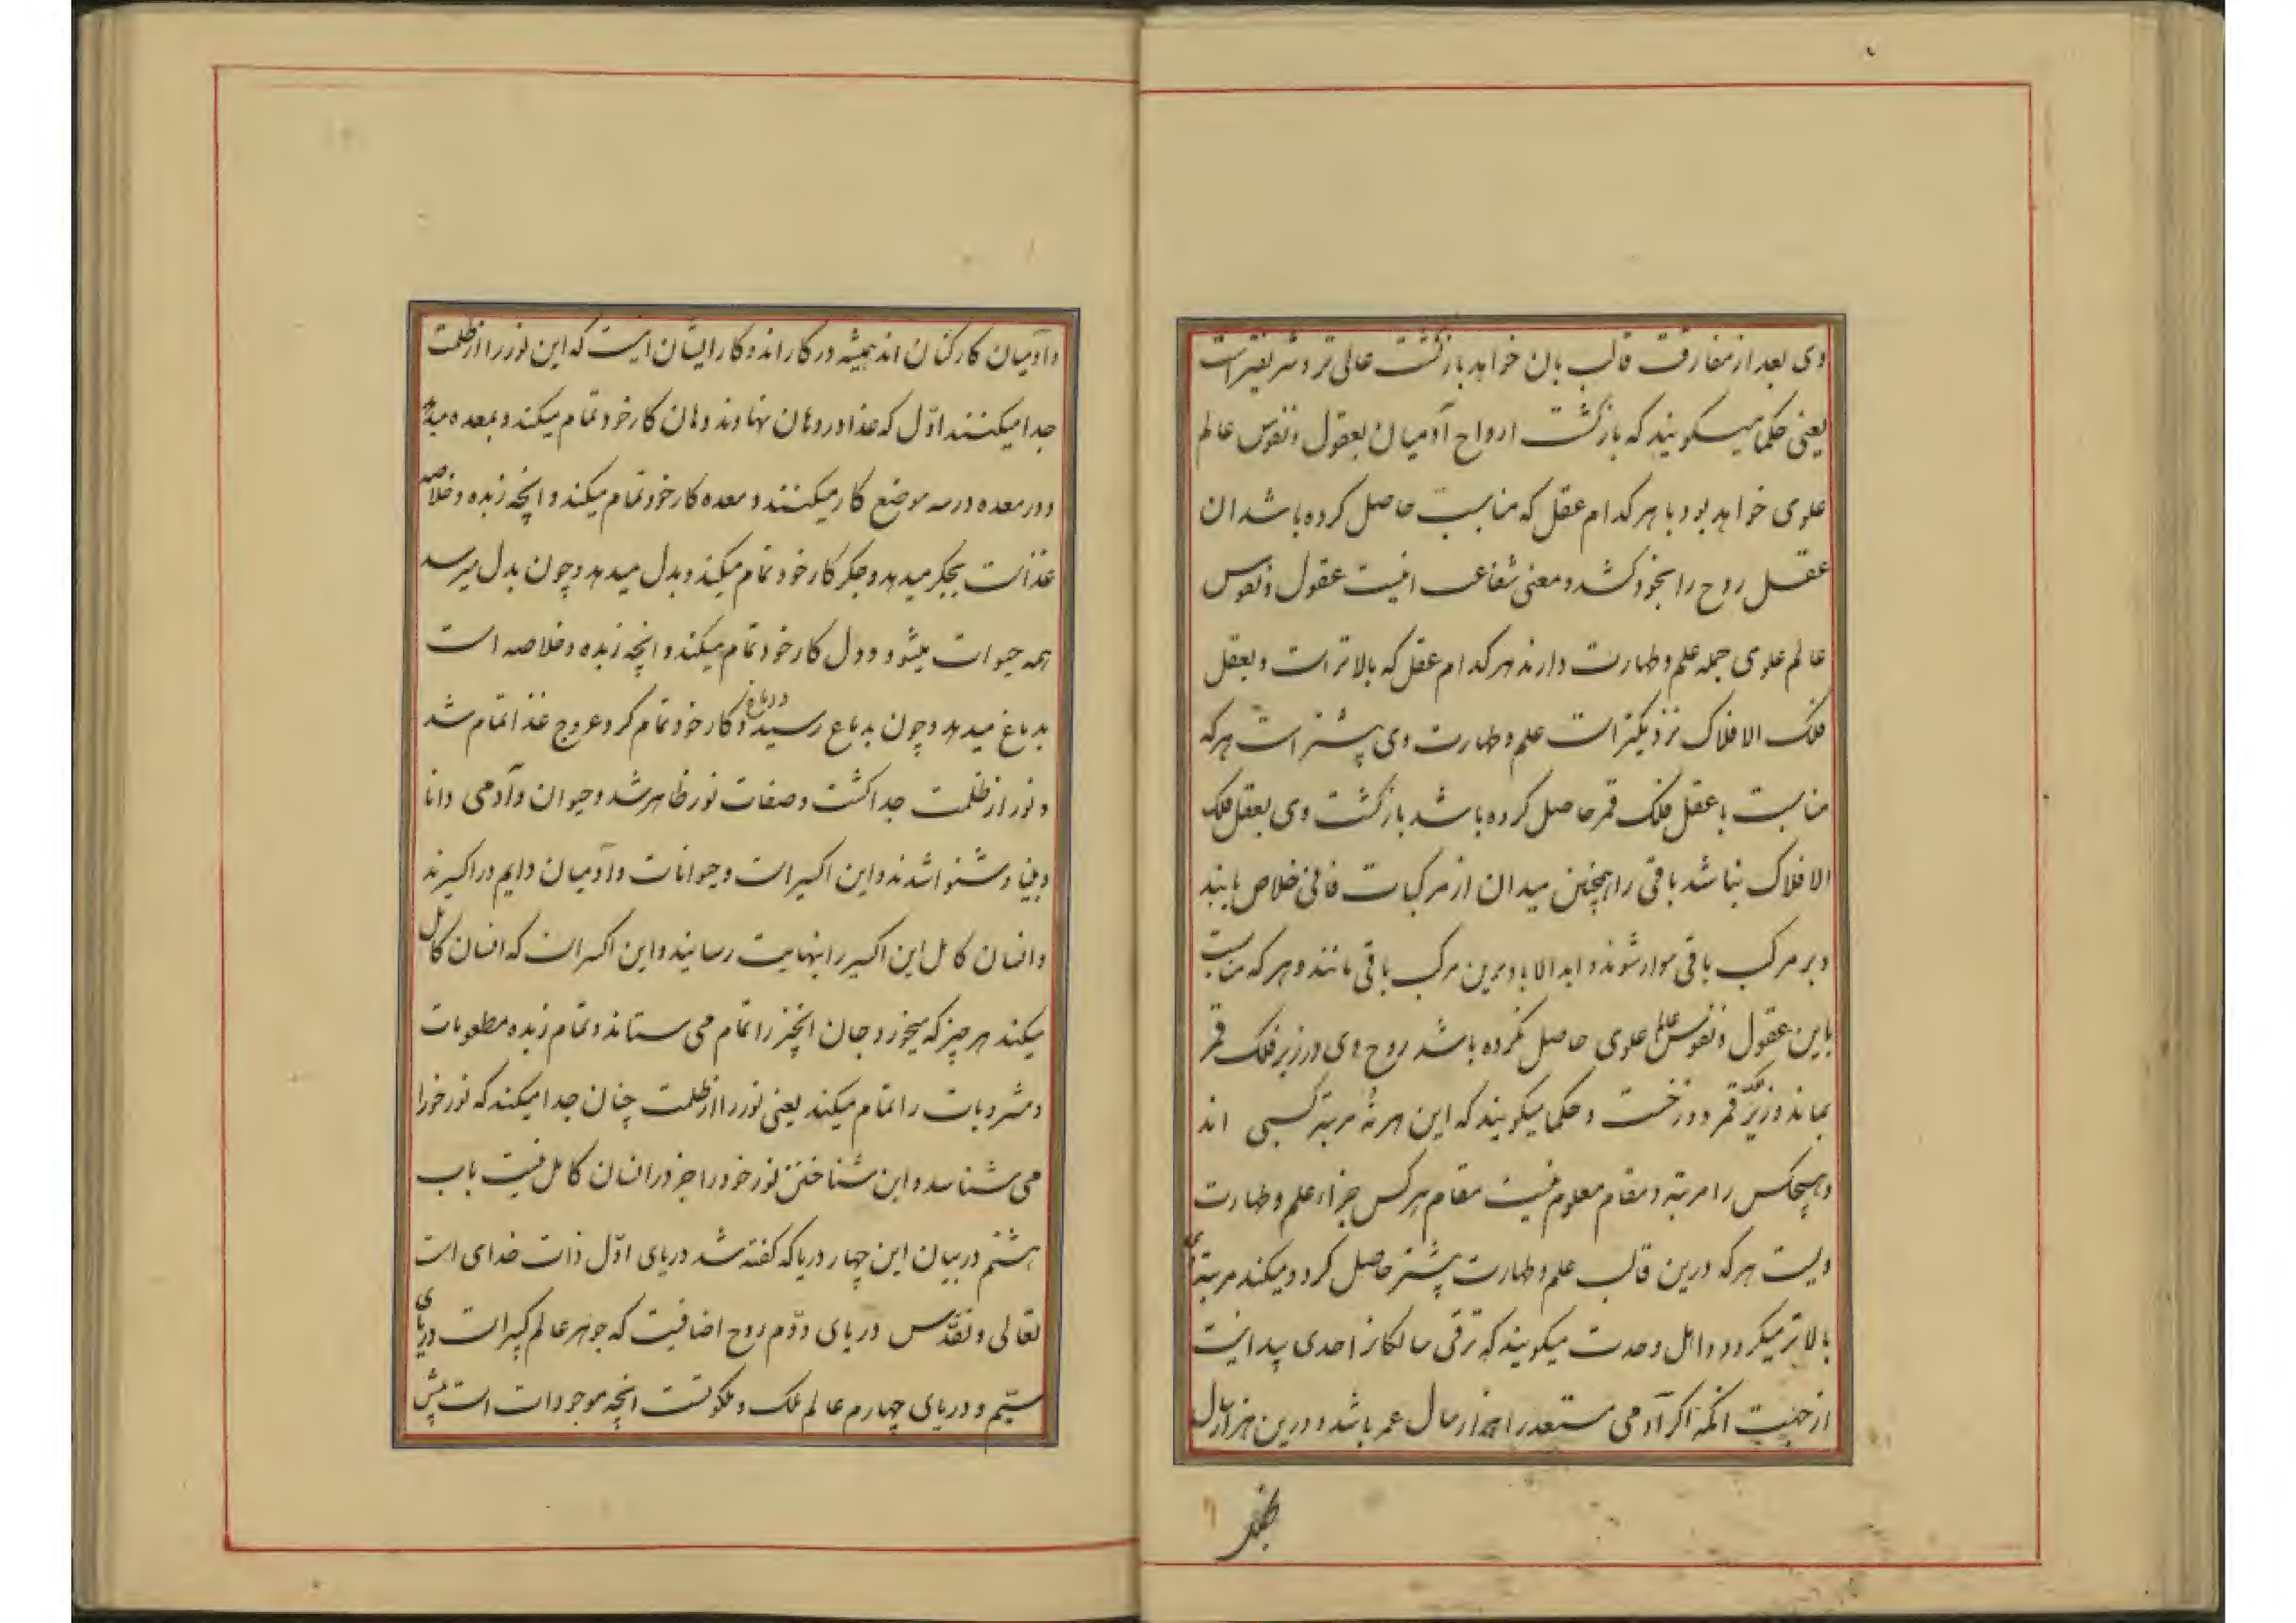 وی بعد از مفارقت قالب بان خواهد بازگشت عالی تر و شریفتراست
یعنی حکما میکویند که بازگشت ارواح آدمیان بعقول و نفوس عالم
علوی خواهد بود با هر کدام عقل که مناسبت حاصل کرده باشد ان
عقل روح را بخود کشد و معنی شفاعت اینست عقول و نفوس
عالم علوی جمله علم و طهارت دارند هر کدام عقل که بالاتر است و بعقل
فلک الافلاک نزدیکتر است علم و طهارت وی بیشتر است هر که
مناسبت با عقل فلک قمر حاصل کرده باشد بازگشت وی بعقل فلک
الافلاک نباشد باقی را همچنین میدان از مرکبات فانی خلاص یابند
و بر مرکب باقی سوار شوند و ابد الاباد برین مرکب باقی مانند و هر که مناسبت
باین عقول و نفوس عالم علوی حاصل نکرده باشد روح وی در زیر فلک قمر
بماند و زیر فلک قمر دوزخست و حکما میکویند که این هر نه مرتبه کسبی اند
و هیچکس را مرتبه و مقام معلوم نیست مقام هر کس جزاء علم و طهارت
ویست هر که درین قالب علم و طهارت بیشتر حاصل کرد و میکند مرتبه وی
بالاتر میکردد و اهل وحدت میکویند که ترقی سالکانرا حدی پیدا نیست
از جهت انکه اکر آدمی مستعد را هزار سال عمر باشد و درین هزار سال
و آدمیان کارکنان اند همیشه در کار اند و کار ایشان اینست که این نور را از ظلمت
جدا میکنند اوّل که غذا در دهان نهادند دهان کار خود تمام میکند و بمعده میدهد
و در معده در سه موضع کار میکنند و معده کار خود تمام میکند و انچه زبده و خلاصه
غذاست بجکر میدهد و جکر کار خود تمام میکند و بدل میدهد و چون بدل میرسد
همه حیوات میشود و دل کار خود تمام میکند و انچه زبده و خلاصه است
بدماغ میدهد و چون بدماغ رسید و دماغ کار خود تمام کرد عروج غذا تمام شد
و نور از ظلمت جدا کشت و صفات نور ظاهر شد و حیوان و آدمی دانا
و بینا و شنوا شدند و این اکسیر است و حیوانات و آدمیان دایم در اکسیرند
و انسان کامل این اکسیر را بنهایت رسانید و این اکسیر است که انسان کامل
میکند هر چیز که میخورد جان انچیز را تمام می ستاند و تمام زبده مطعومات
و مشروبات را تمام میکند یعنی نور را از ظلمت چنان جدا میکند که نور خود را
می شناسد و این شناختن نور خود را جز در انسان کامل نیست باب
هشتم در بیان این چهار دریا که کفته شد دریای اوّل ذات خدای است
تعالی و تقدّس دریای دوّم روح اضافیست که جوهر عالم کبیر است دریای
سیّم و دریای چهارم عالم ملک و ملکوتست انچه موجودات است پیش